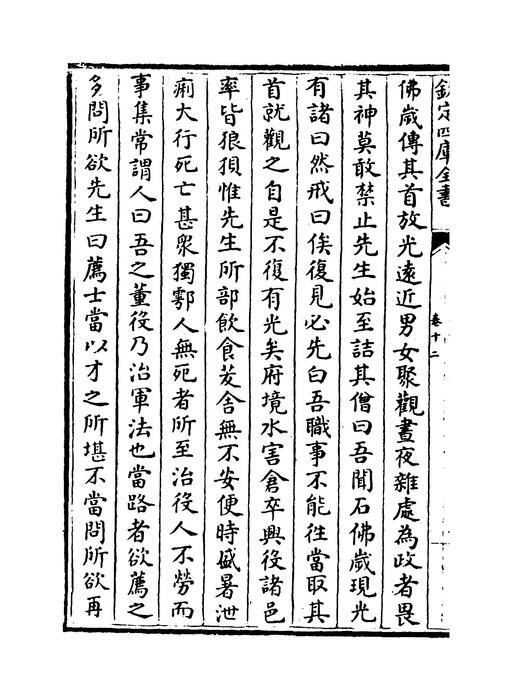 欽定四庫全書
卷十二
佛歲傳其首放光遠近男女聚觀晝夜雜處為政者畏
其神莫敢禁止先生始至詰其僧曰吾聞石佛歲現光
有諸曰然戒曰俟復見必先白吾職事不能往當取其
首就觀之自是不復有光矣府境水害倉卒興役諸邑
率皆狼狽惟先生所部飲食茇舍無不安便時盛暑泄
痢大行死亡甚衆獨鄠人無死者所至治役人不勞而
事集常謂人曰吾之董役乃治軍法也當路者欲薦之
多問所欲先生曰薦士當以才之所堪不當問所欲再